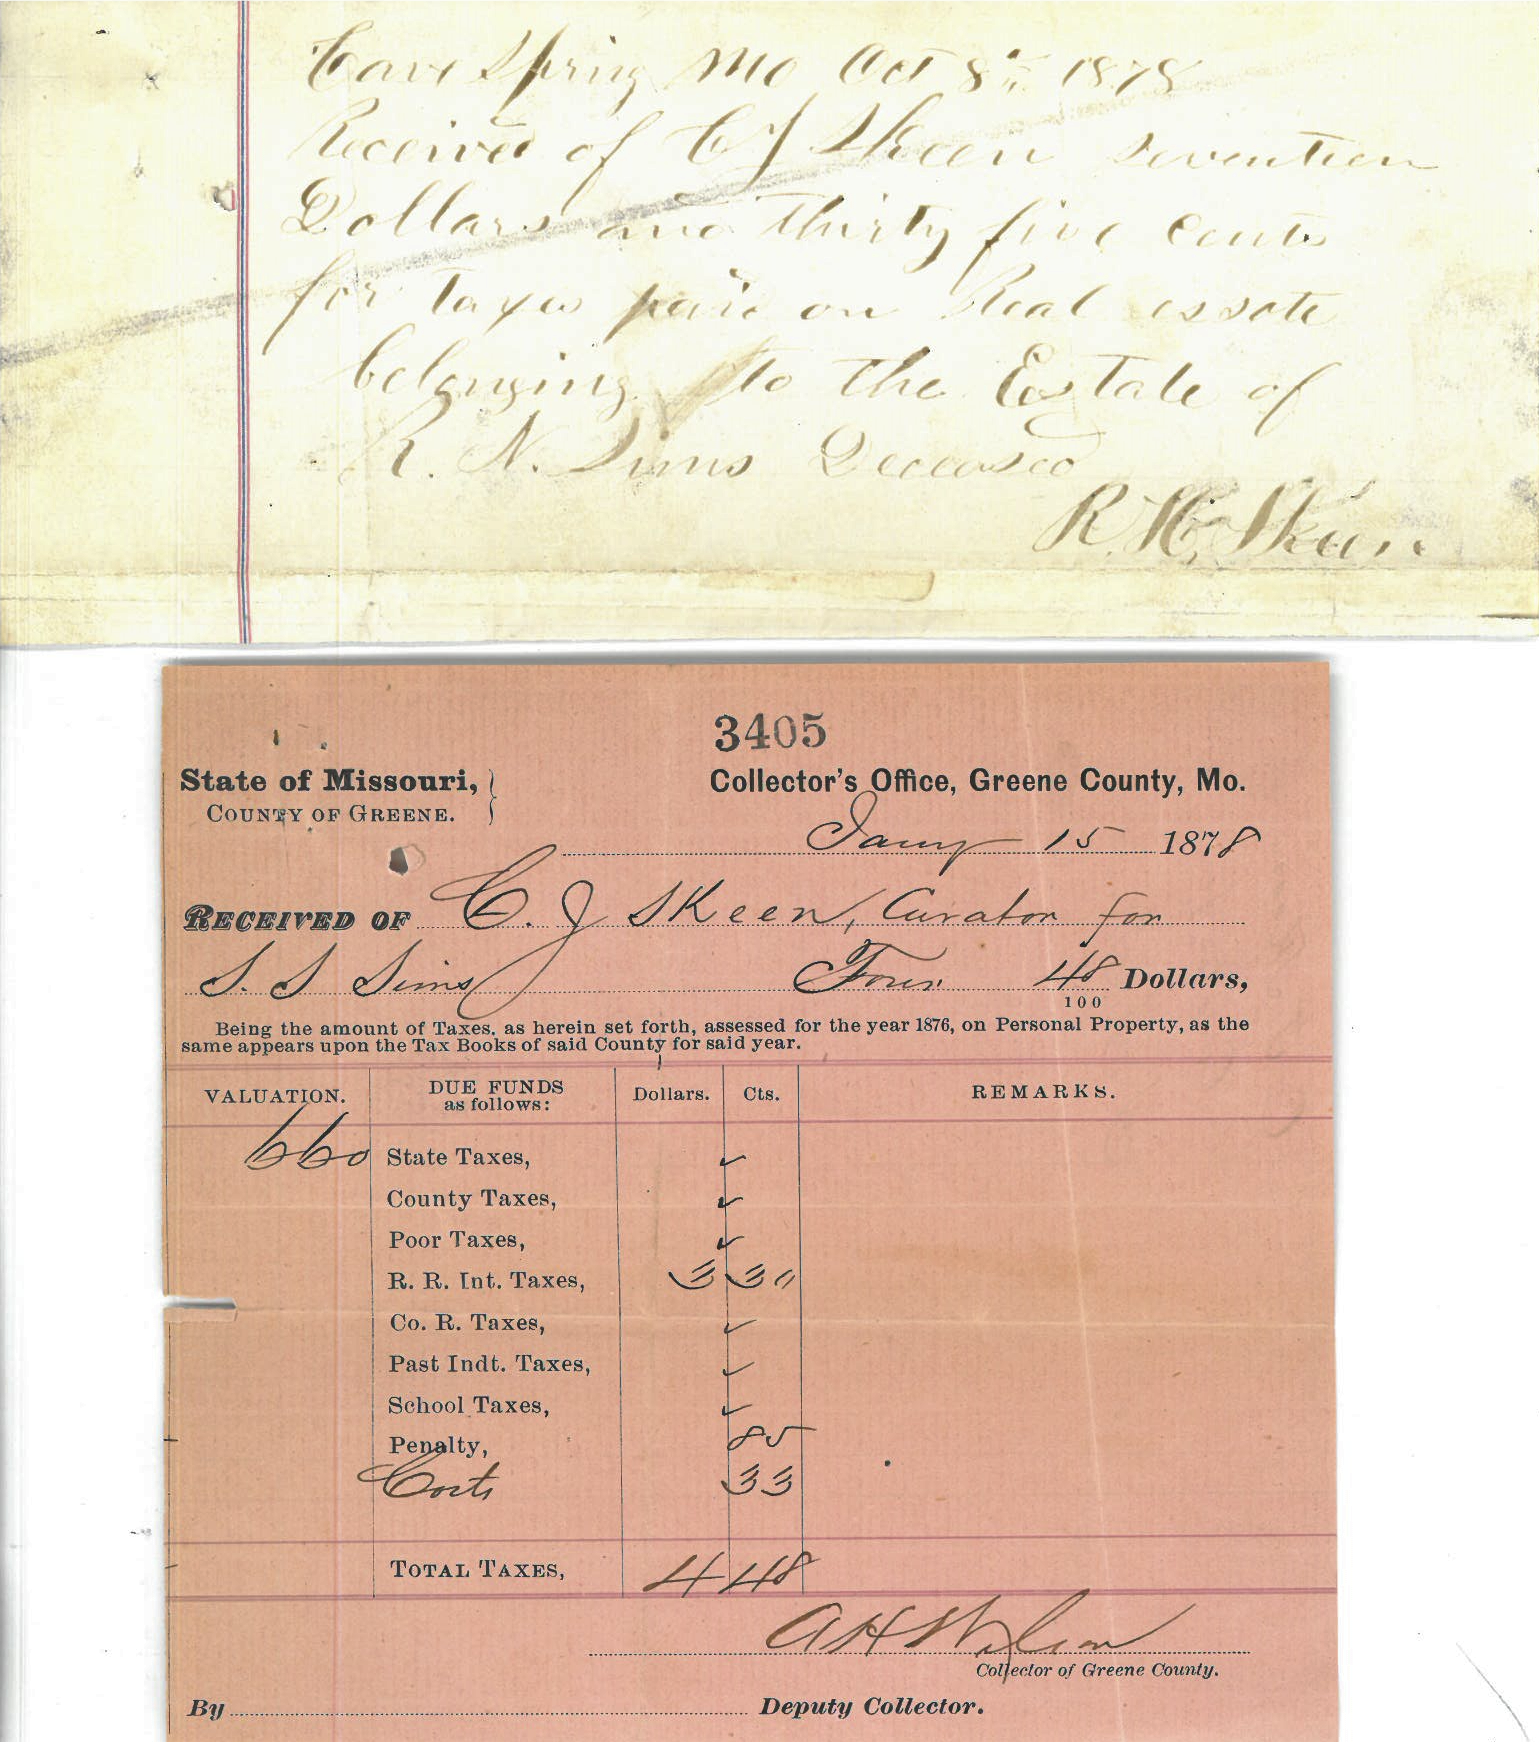 Cave Spring Mo Oct 8th 1878
Received of C J Skeen seventeen
Dollars and thirty five cents
for taxes paid on Real essate
belonging to the Estate of
R. N. Sims Deceased
R. H. Skeen
3405
State of Missouri,
COUNTY OF GREENE.
Collector's Office, Greene County, Mo.
Jany 15 1878
RECEIVED OF C. J Skeen, Curator for
S. S Sims Four 48/100 Dollars,
Being the amount of Taxes, as herein set forth, assessed for the year 1876, on Personal Property, as the
same appears upon the Tax Books of said County for said year.
VALUATION. DUE FUNDS as follows: Dollars. Cts. REMARKS.
660 State Taxes, ✓
County Taxes, ✓
Poor Taxes, ✓
R. R. Int. Taxes, 3 30
Co. R. Taxes, ✓
Past Indt. Taxes, ✓
School Taxes, ✓
Penalty, 85
Costs 33
TOTAL TAXES, 4 48
A H Wilson
Collector of Greene County.
By Deputy Collector.